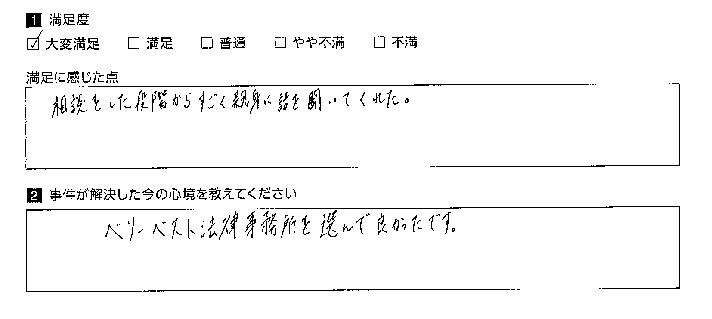 1 満足度
☑ 大変満足 □ 満足 □ 普通 □ やや不満 □ 不満
満足に感じた点
相談をした段階からすごく親身に話を聞いてくれた。
2 事件が解決した今の心境を教えてください
ベリーベスト法律事務所を選んで良かったです。